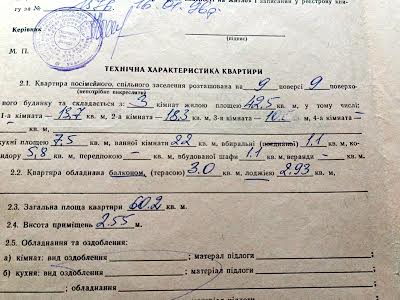 гу за № 16.04.96р.
Керівник
(підпис)
М. П.
ТЕХНІЧНА ХАРАКТЕРИСТИКА КВАРТИРИ
2.1. Квартира посімейного, спільного заселення розташована на 9 поверсі 9 поверхо-
(непотрібне викреслити)
вого будинку та складається з 3 кімнат жилою площею 42,5 кв. м, у тому числі:
1-а кімната — 13,7 кв. м, 2-а кімната — 18,3 кв. м, 3-я кімната — кв. м, 4-а кімната —
кв. м,
кухні площею 7,5 кв. м, ванної кімнати 2,2 кв. м, вбиральні 1,1 кв. м, ко-
ридору 5,8 кв. м, передпокою — кв. м, вбудованої шафи 1.1 кв. м, веранди — кв. м.
2.2. Квартира обладнана балконом, (терасою) 3.0 кв. м, лоджією 2.93 кв. м.
2.3. Загальна площа квартири 60.2 кв. м.
2.4. Висота приміщень 2.55 м.
2.5. Обладнання та оздоблення:
а) кімнат: вид оздоблення ; матерал підлоги ;
б) кухня: вид оздоблення ; матеріал підлоги ;
; обладнання
матеріал підлоги